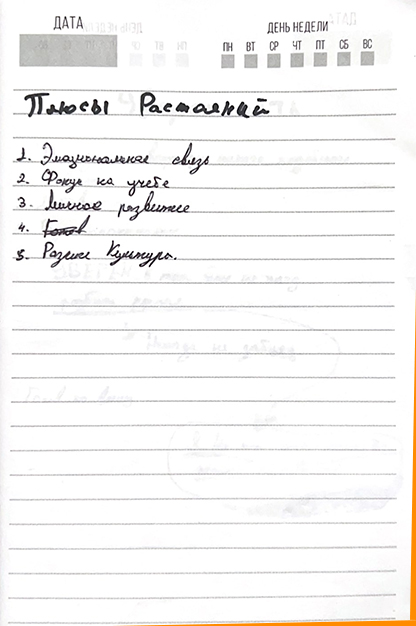 ДАТА
ДЕНЬ НЕДЕЛИ
ПН ВТ СР ЧТ ПТ СБ ВС
Плюсы Растояний
1. Эмацыональное связь
2. Фокус на учебе
3. Личное развитие
4. Готов
5. Разные Культуры.